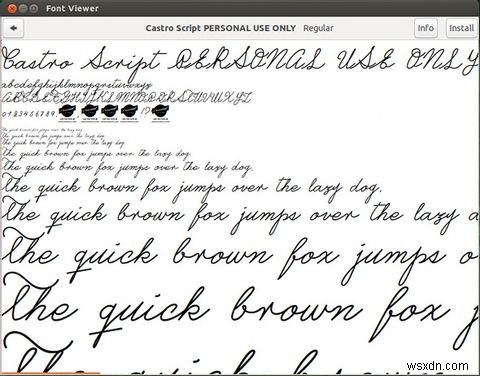 Font Viewer
Castro Script PERSONAL USE ONLY Regular Info Install
Castro Script PERSONAL USE ONLY
abcdefghijklmnopqrstuvwxyz
ABCDEFGHIJKLMNOPQRSTUVWXYZ
0123456789. !?
the quick brown fox jumps over the lazy dog.
The quick brown fox jumps over the lazy dog.
The quick brown fox jumps over the lazy dog.
The quick brown fox jumps over the lazy dog.
The quick brown fox jumps over the lazy dog.
The quick brown fox jumps over the lazy dog.
The quick brown fox jumps over the lazy d
The quick brown fox jumps o
The quick brown fox j
wsxdn.com